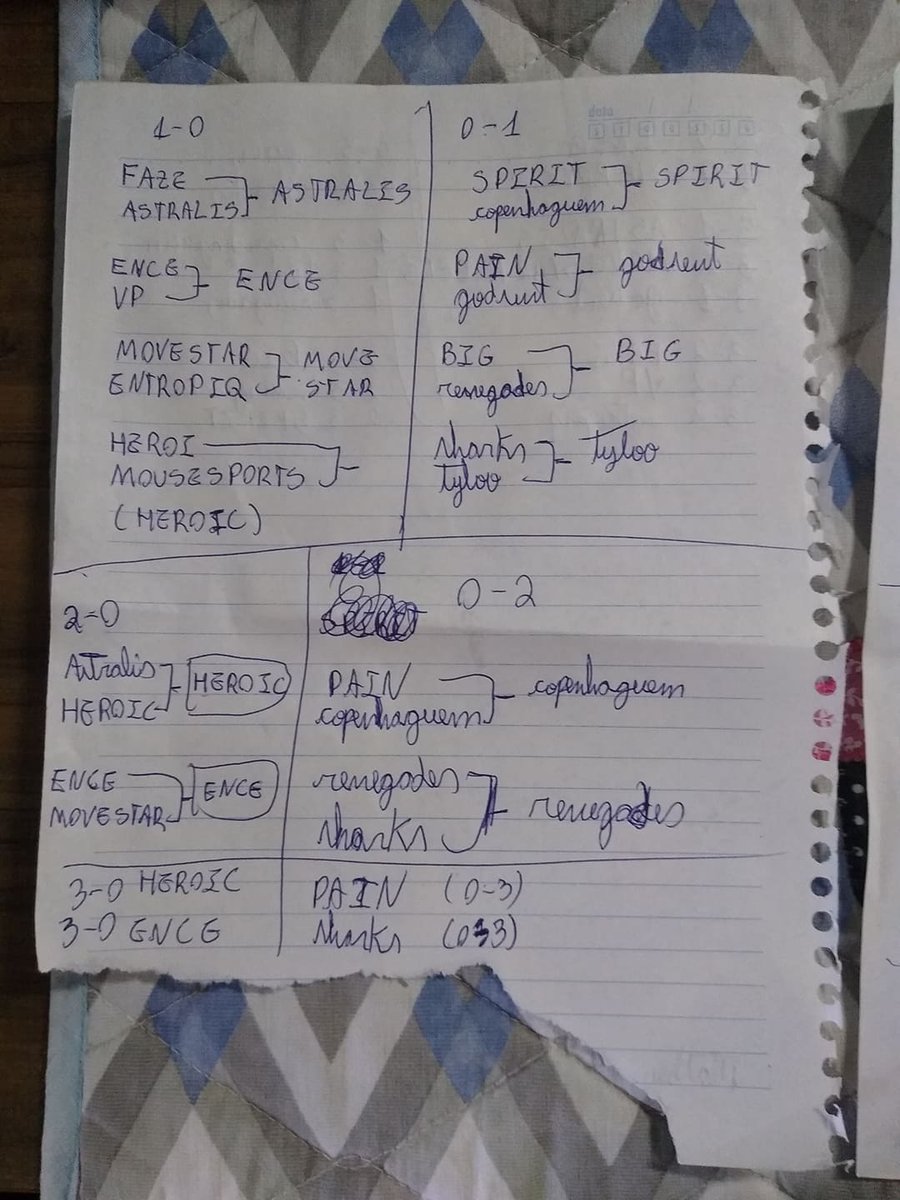 1-0
FAZE
ASTRALIS
ASTRALIS
ENCE
VP
ENCE
MOVESTAR
ENTROPIQ
MOVE
STAR
HEROI
MOUSESPORTS
(HEROIC)
0-1
data
SPIRIT
copenhaguem
SPIRIT
PAIN
godsent
godsent
BIG
renegades
BIG
sharks
Tyloo
Tyloo
2-0
Astralis
HEROIC
HEROIC
ENCE
MOVESTAR
ENCE
0-2
PAIN
copenhaguem
copenhaguem
renegades
sharks
renegades
3-0 HEROIC
3-0 ENCE
PAIN (0-3)
sharks (0-3)